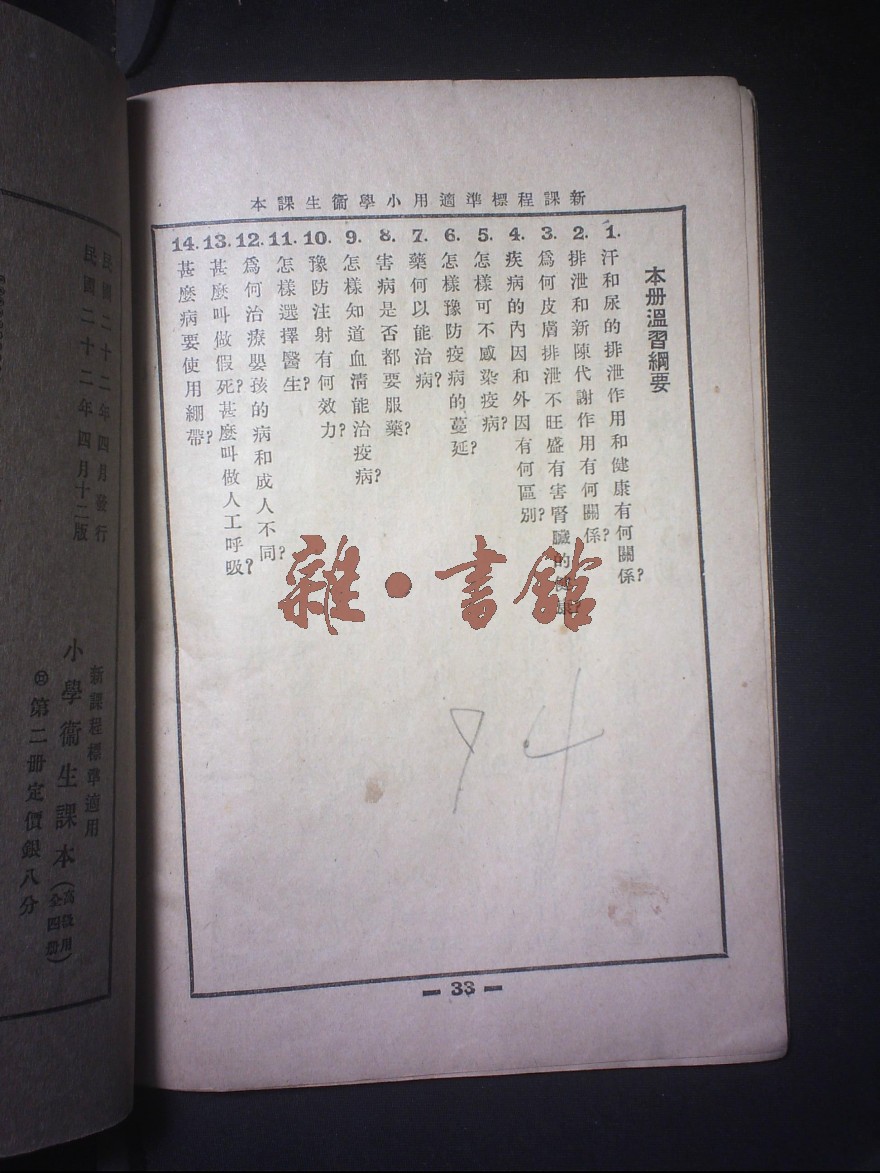 新課程標準適用小學衞生課本
本册溫習綱要
1. 汗和尿的排泄作用和健康有何關係?
2. 排泄和新陳代謝作用有何關係?
3. 爲何皮膚排泄不旺盛有害腎臟的健康?
4. 疾病的內因和外因有何區別?
5. 怎樣可不感染疫病?
6. 怎樣豫防疫病的蔓延?
7. 藥何以能治病?
8. 害病是否都要服藥?
9. 怎樣知道血清能治疫病?
10. 豫防注射有何效力?
11. 怎樣選擇醫生?
12. 爲何治療嬰孩的病和成人不同?
13. 甚麼叫做假死?甚麼叫做人工呼吸?
14. 甚麼病要使用綳帶?
雜·書館
74
— 33 —
民國二十二年四月發行
民國二十二年四月十二版
新課程標準適用
小學衞生課本(高級用全四册)
第二册定價銀八分